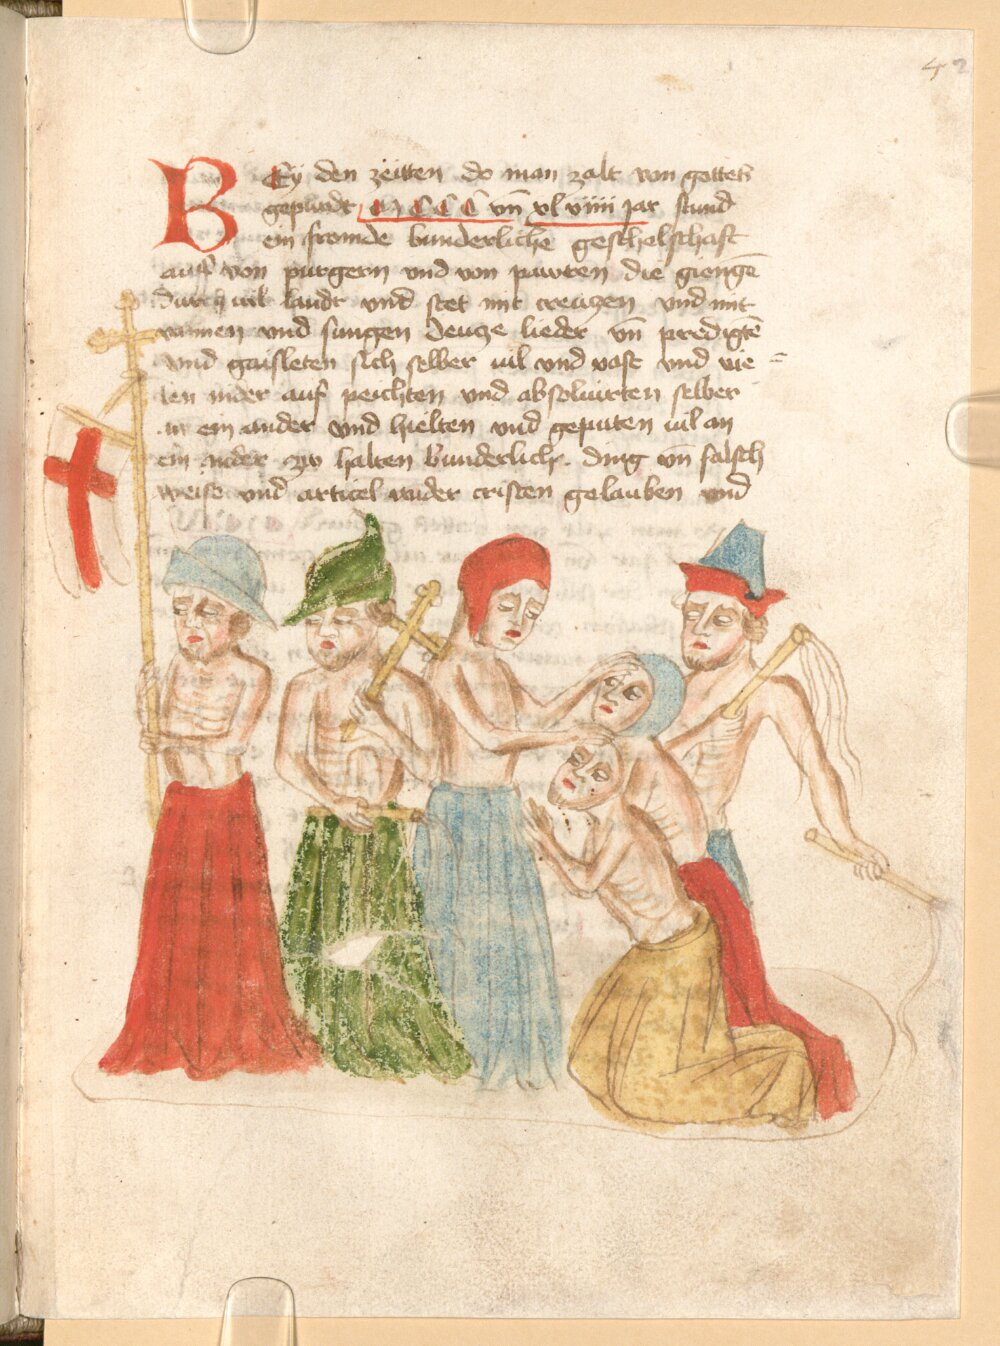 42
BEy den zeitten do man zalt von gottes
gepurdt M C C C vn̄ xl viiii jar stund
ein fromde bunderliche geschelschaft
auf von purgern vnd von pawren die giengē
durch vil landt vnd stet mit creuczen vnd mit
vannen vnd sungen deucze lieder vn̄ predigtē
vnd gaisleten sich selber vil vnd vast vnd vie
len nider auf peichten vnd absoluirten selber
an ein ander vnd hielten vnd geputen vil an
ein ander czu halten bunderlich ding vn̄ falsch
weise vnd articel wider cristen gelauben vnd